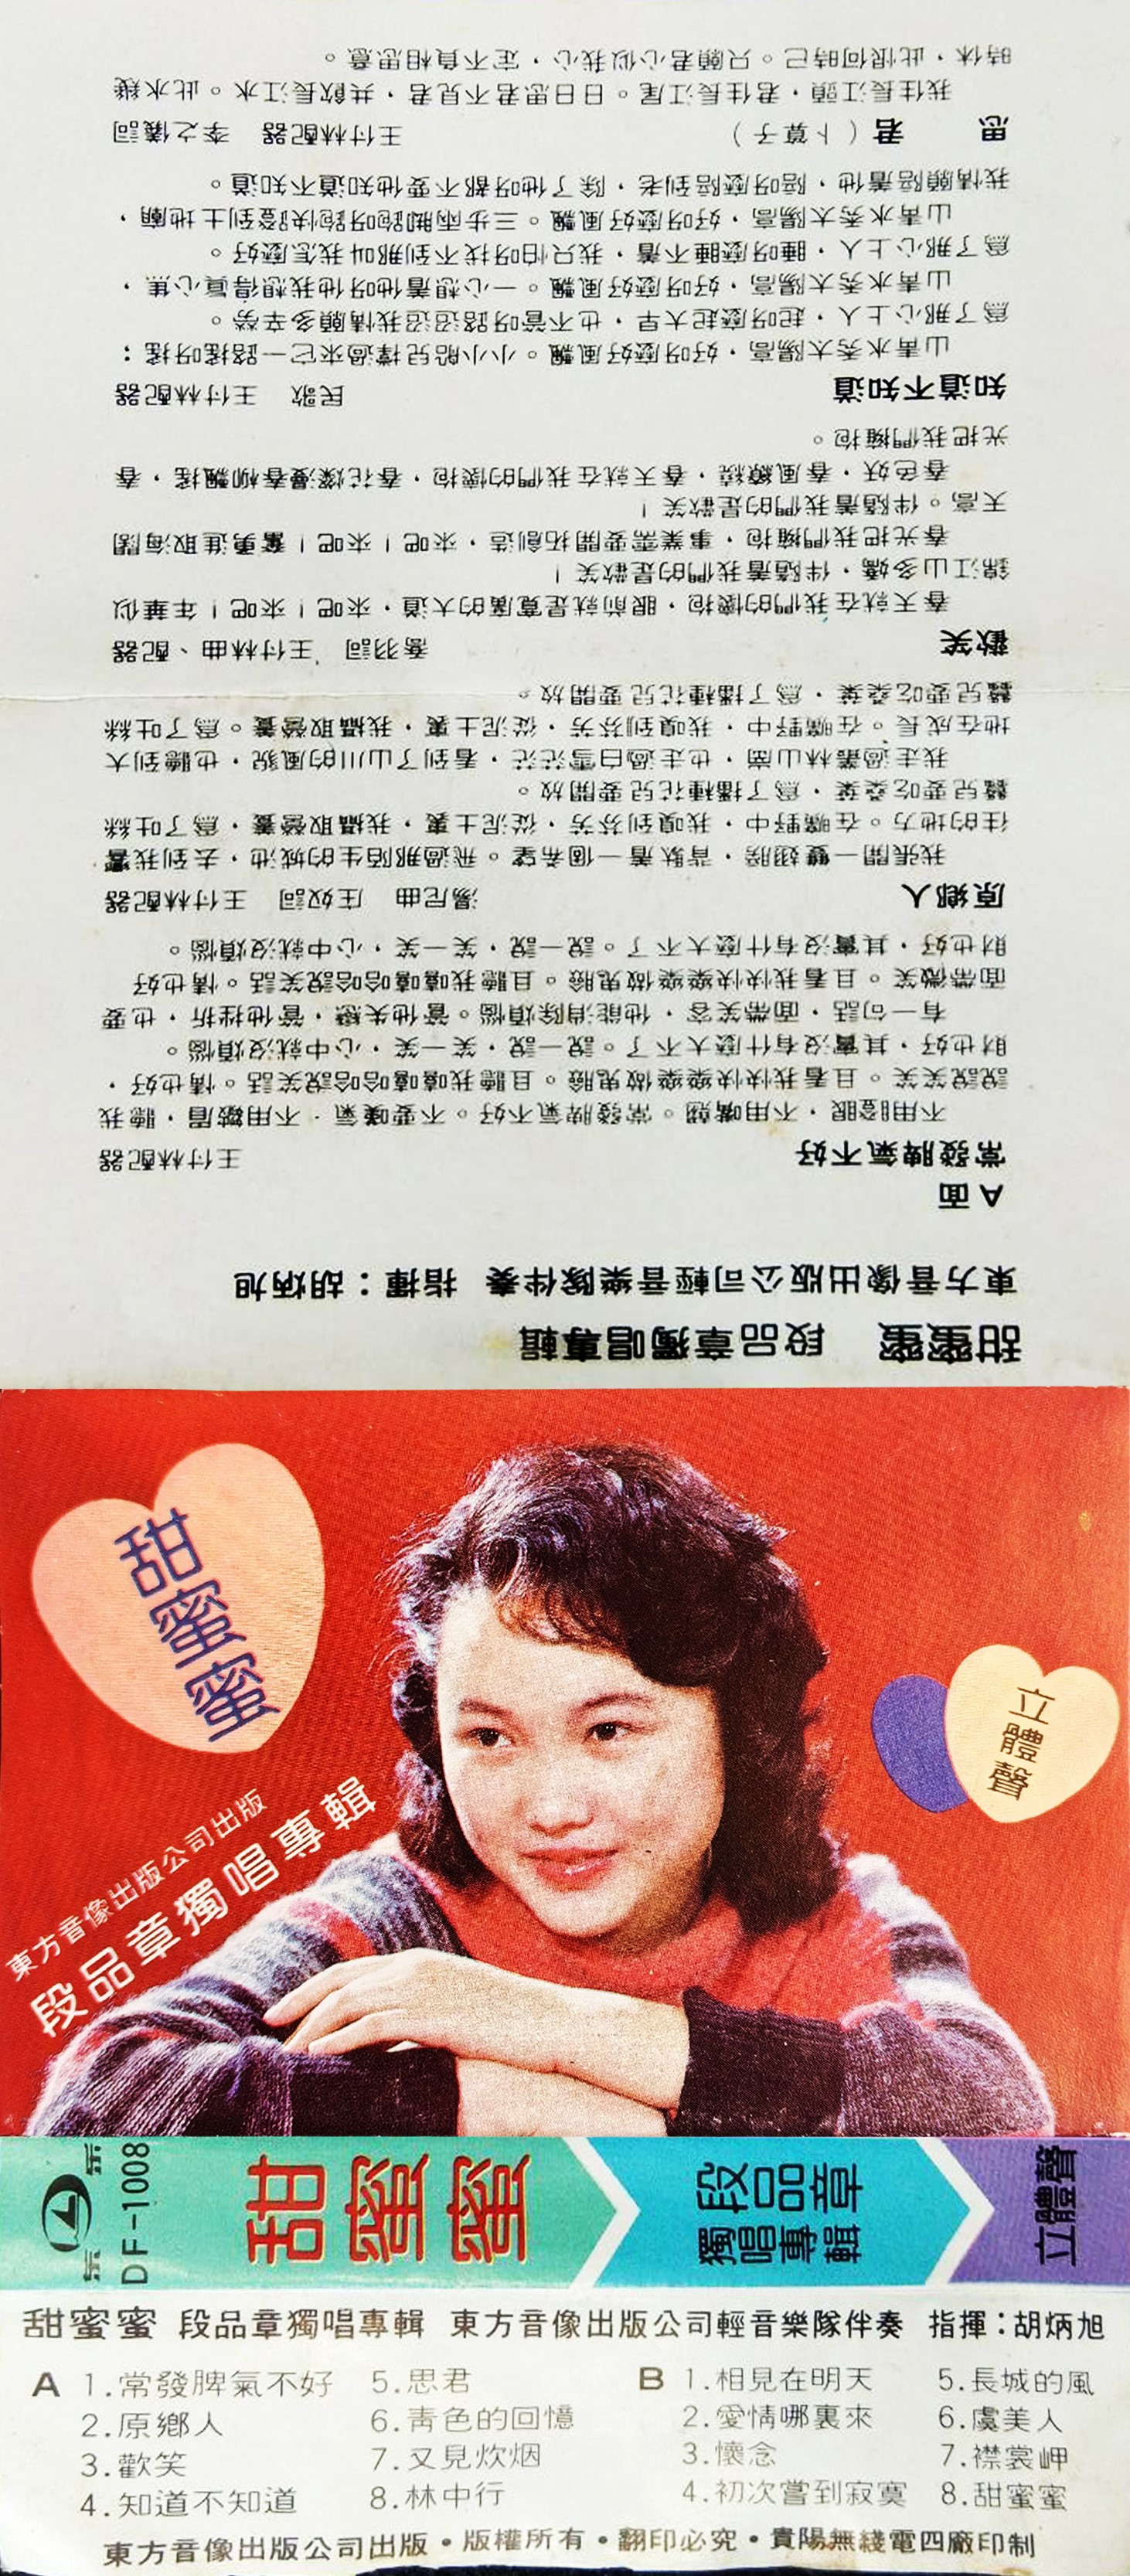 甜蜜蜜 段品章獨唱專輯
東方音像出版公司輕音樂隊伴奏 指揮：胡炳旭
A 面
常發脾氣不好 王付林配器
不用瞪眼，不用嘴翹。常發脾氣不好。不要嘆氣，不用皺眉，聽我
說說笑笑。且看我快快樂樂做鬼臉。且聽我嘻嘻哈哈說笑話。情也好，
財也好，其實沒有什麼大不了。說一說，笑一笑，心中就沒煩惱。
有一句話，面帶笑容，他能消除煩惱。管他失戀，管他挫折，也要
面帶微笑。且看我快快樂樂做鬼臉。且聽我嘻嘻哈哈說笑話。情也好
財也好，其實沒有什麼大不了。說一說，笑一笑，心中就沒煩惱。
原鄉人 湯尼曲 庄奴詞 王付林配器
我張開一雙翅膀，背馱着一個希望。飛過那陌生的城池，去到我嚮
往的地方。在曠野中，我嗅到芬芳，從泥土裏，我攝取營養。爲了吐絲
蠶兒要吃桑葉，爲了播種花兒要開放。
我走過叢林山崗，也走過白雪茫茫，看到了山川的風貌，也聽到大
地在成長。在曠野中，我嗅到芬芳，從泥土裏，我攝取營養。爲了吐絲
蠶兒要吃桑葉，爲了播種花兒要開放。
歡笑 喬羽詞 王付林曲、配器
春天就在我們的懷抱，眼前就是寬廣的大道，來吧！來吧！年華似
錦江山多嬌，伴隨着我們的是歡笑！
春光把我們擁抱，事業需要開拓創造，來吧！來吧！奮勇進取海闊
天高。伴隨着我們的是歡笑！
春色妖，春風繚繞，春天就在我們的懷抱，春花爛漫春柳飄搖，春
光把我們擁抱。
知道不知道 民歌 王付林配器
山青水秀太陽高，好呀麼好風飄。小小船兒撑過來它一路搖呀搖；
爲了那心上人，起呀麼起大早，也不管呀路迢迢我情願多辛勞。
山青水秀太陽高，好呀麼好風飄。一心想着他呀他我想得真心焦，
爲了那心上人，睡呀麼睡不着，我只怕呀找不到那叫我怎麼好。
山青水秀太陽高，好呀麼好風飄。三步兩脚跑呀跑快跑到土地廟，
我情願陪着他，陪呀麼陪到老，除了他呀都不要他知道不知道。
思 君（卜算子） 王付林配器 李之儀詞
我住長江頭，君住長江尾。日日思君不見君，共飲長江水。此水幾
時休，此恨何時已。只願君心似我心，定不負相思意。
甜蜜蜜
立體聲
東方音像出版公司出版
段品章獨唱專輯
东 乐
DF-1008
甜蜜蜜
段品章
獨唱專輯
立體聲
甜蜜蜜 段品章獨唱專輯 東方音像出版公司輕音樂隊伴奏 指揮：胡炳旭
A 1.常發脾氣不好 5.思君 B 1.相見在明天 5.長城的風
2.原鄉人 6.靑色的回憶 2.愛情哪裏來 6.虞美人
3.歡笑 7.又見炊烟 3.懷念 7.襟裳岬
4.知道不知道 8.林中行 4.初次嘗到寂寞 8.甜蜜蜜
東方音像出版公司出版・版權所有・翻印必究・貴陽無綫電四廠印制